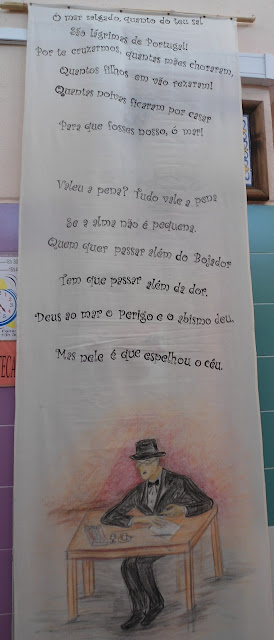 Ó mar salgado, quanto do teu sal
São lágrimas de Portugal!
Por te cruzarmos, quantas mães choraram,
Quantos filhos em vão rezaram!
Quantas noivas ficaram por casar
Para que fosses nosso, ó mar!
Valeu a pena? Tudo vale a pena
Se a alma não é pequena.
Quem quer passar além do Bojador
Tem que passar além da dor.
Deus ao mar o Perigo e o abismo deu,
Mas nele é que espelhou o céu.
TECA